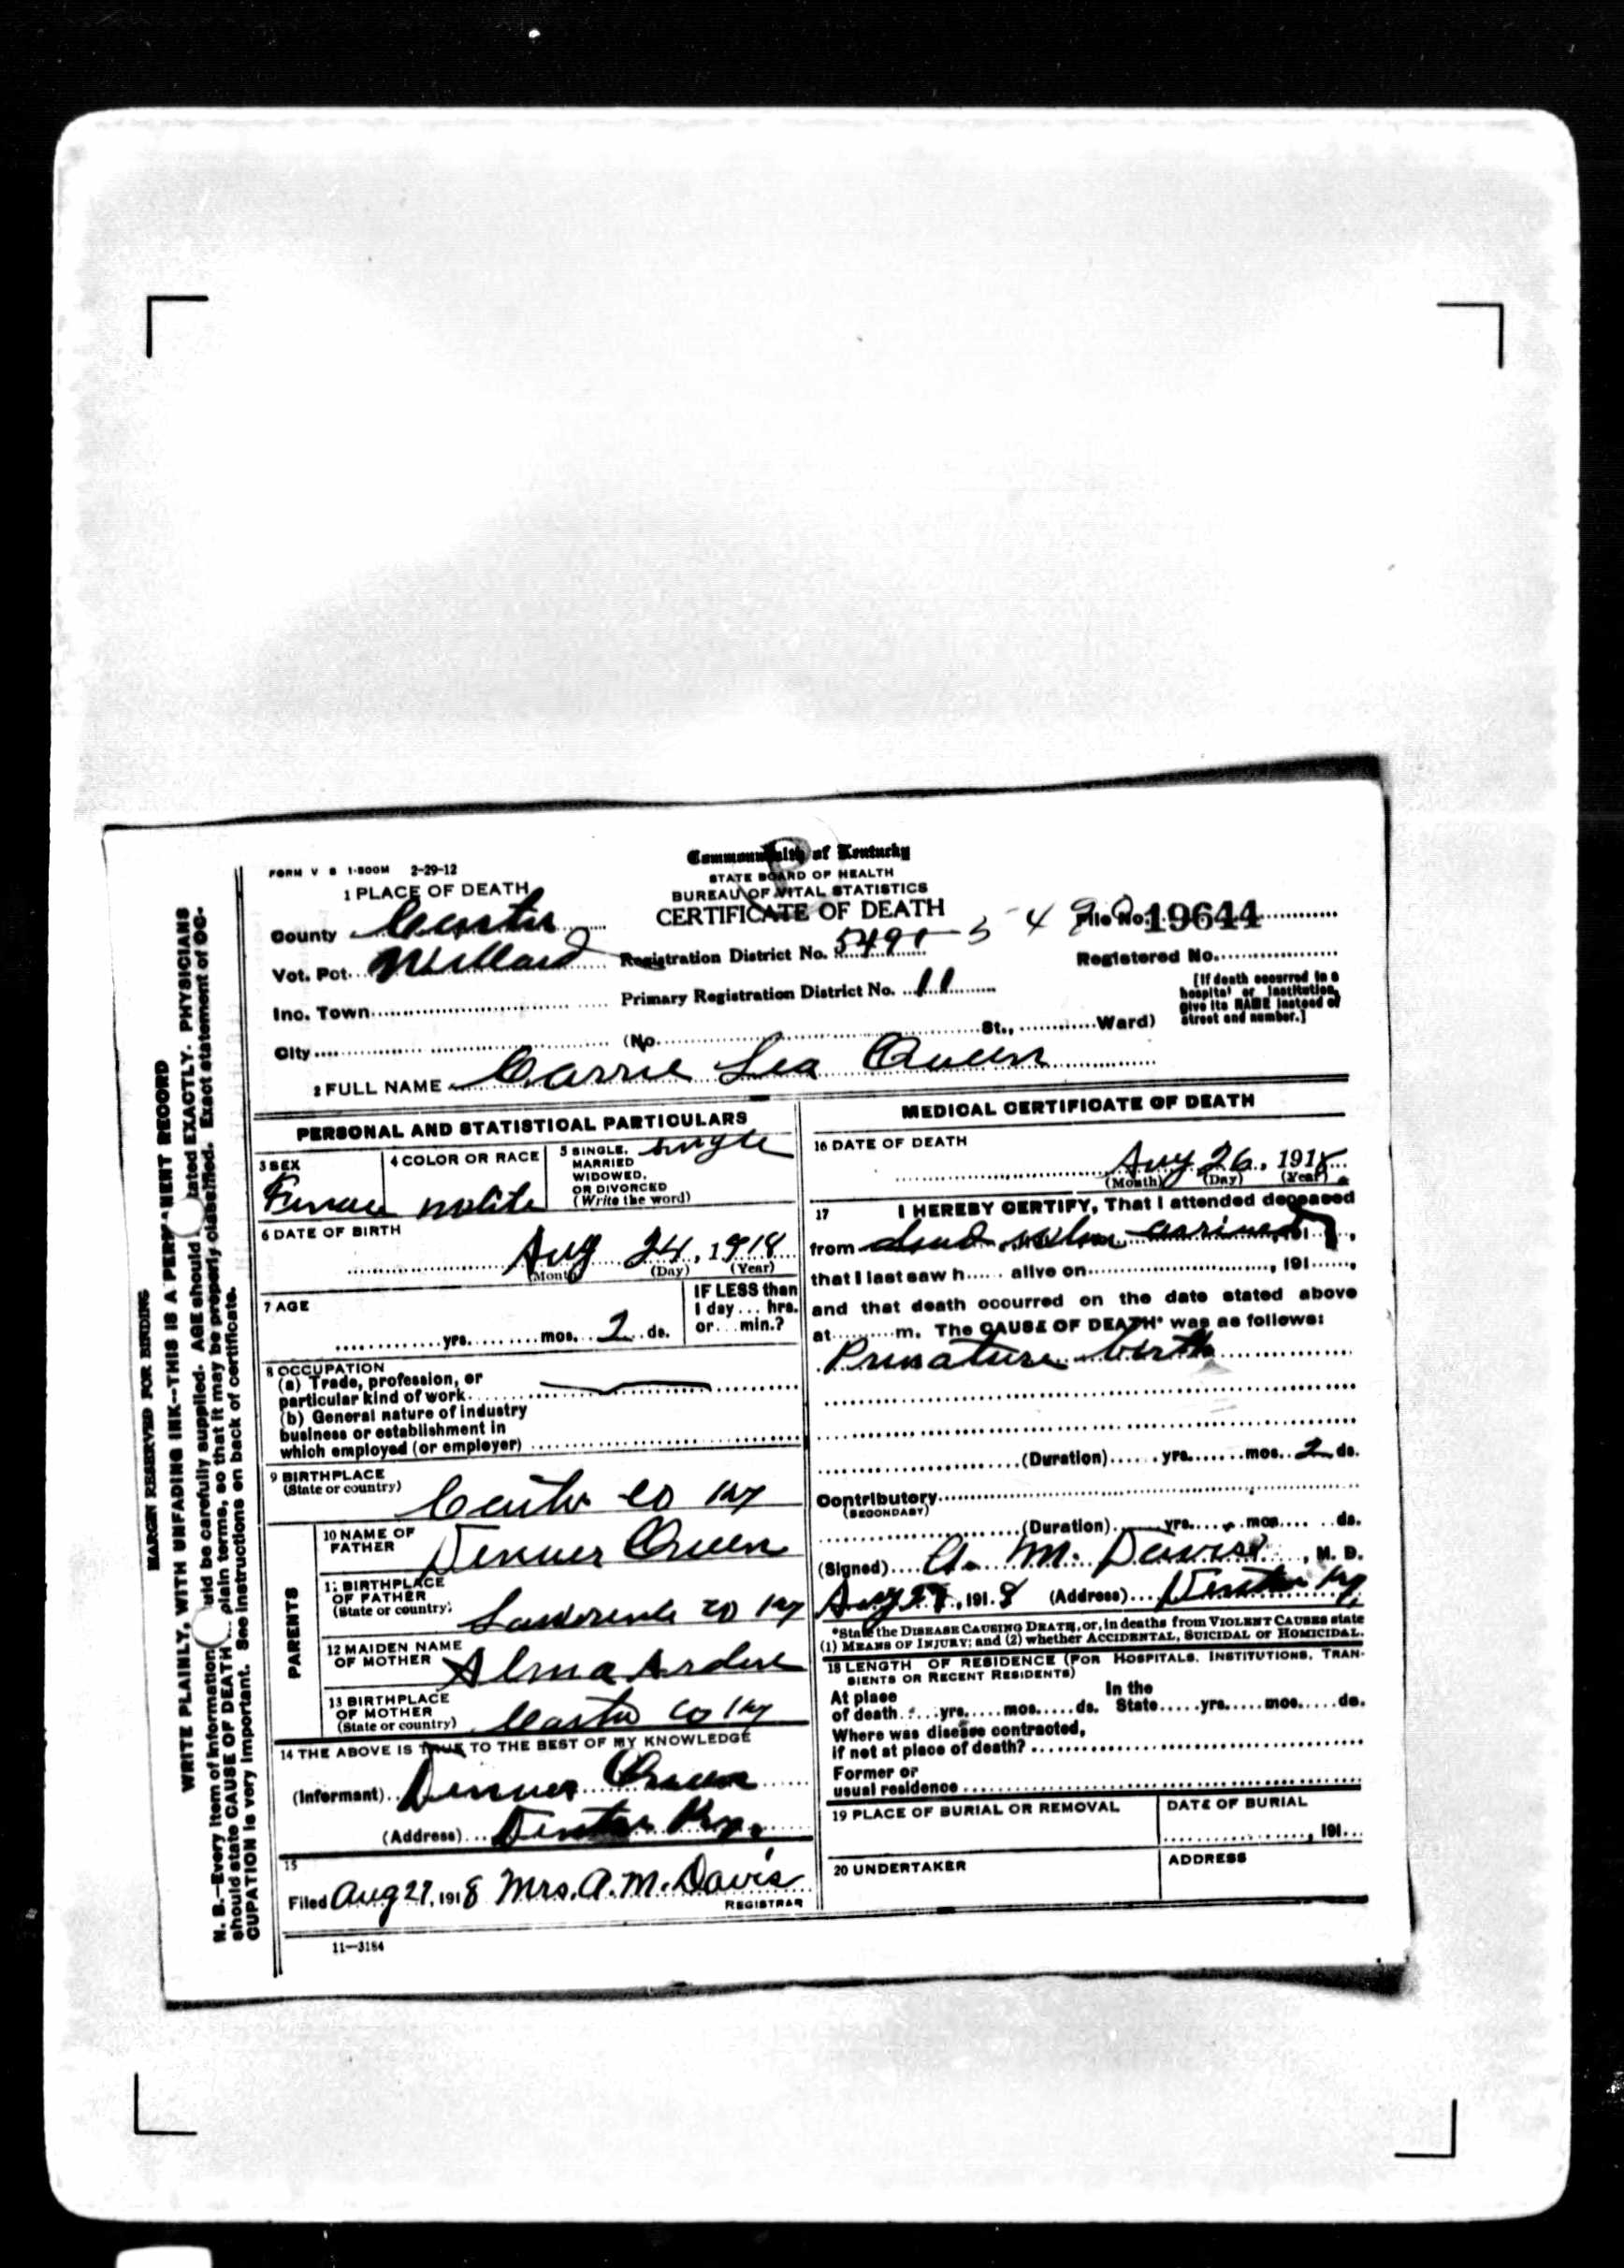 FORM V S 1-500M 2-29-12
Commonwealth of Kentucky
STATE BOARD OF HEALTH
BUREAU OF VITAL STATISTICS
CERTIFICATE OF DEATH
1 PLACE OF DEATH
County Carter
Vot. Pct. Willard
Inc. Town
City
Registration District No. 5491
Primary Registration District No. 11
(No. St., Ward)
File No. 19644
Registered No.
[If death occurred in a
hospital or institution,
give its NAME instead of
street and number.]
2 FULL NAME Carrie Lea Queen
PERSONAL AND STATISTICAL PARTICULARS
3 SEX
Female
4 COLOR OR RACE
white
5 SINGLE, single
MARRIED
WIDOWED,
OR DIVORCED
(Write the word)
6 DATE OF BIRTH
Aug 24, 1918
(Month) (Day) (Year)
7 AGE
yrs. mos. 2 ds.
IF LESS than
1 day ... hrs.
or ... min.?
8 OCCUPATION
(a) Trade, profession, or
particular kind of work
(b) General nature of industry
business or establishment in
which employed (or employer)
9 BIRTHPLACE
(State or country)
Carter Co Ky
PARENTS
10 NAME OF
FATHER
Denver Queen
11 BIRTHPLACE
OF FATHER
(State or country)
Lawrence Co Ky
12 MAIDEN NAME
OF MOTHER
Alma
13 BIRTHPLACE
OF MOTHER
(State or country)
Carter Co Ky
14 THE ABOVE IS TRUE TO THE BEST OF MY KNOWLEDGE
(Informant) Denver Queen
(Address) Denton Ky.
15
Filed Aug 27, 1918 Mrs. A. M. Davis
REGISTRAR
11—3184
MEDICAL CERTIFICATE OF DEATH
16 DATE OF DEATH
Aug 26, 1918
(Month) (Day) (Year)
17 I HEREBY CERTIFY, That I attended deceased
from dead when arrived, 191
that I last saw h alive on , 191
and that death occurred on the date stated above
at m. The CAUSE OF DEATH* was as follows:
Premature birth
(Duration) yrs. mos. 2 ds.
Contributory
(SECONDARY)
(Duration) yrs. mos. ds.
(Signed) A. M. Davis, M. D.
Aug , 1918 (Address) Denton Ky,
*State the DISEASE CAUSING DEATH, or, in deaths from VIOLENT CAUSES state
(1) MEANS OF INJURY; and (2) whether ACCIDENTAL, SUICIDAL or HOMICIDAL.
18 LENGTH OF RESIDENCE (FOR HOSPITALS, INSTITUTIONS, TRAN-
SIENTS OR RECENT RESIDENTS)
At place In the
of death yrs. mos. ds. State yrs. mos. ds.
Where was disease contracted,
if not at place of death?
Former or
usual residence
19 PLACE OF BURIAL OR REMOVAL
DATE OF BURIAL
, 191
20 UNDERTAKER
ADDRESS
MARGIN RESERVED FOR BINDING
WRITE PLAINLY, WITH UNFADING INK--THIS IS A PERMANENT RECORD
N. B.—Every item of information uld be carefully supplied. AGE should tated EXACTLY. PHYSICIANS
should state CAUSE OF DEATH plain terms, so that it may be properly classified. Exact statement of OC-
CUPATION is very important. See instructions on back of certificate.